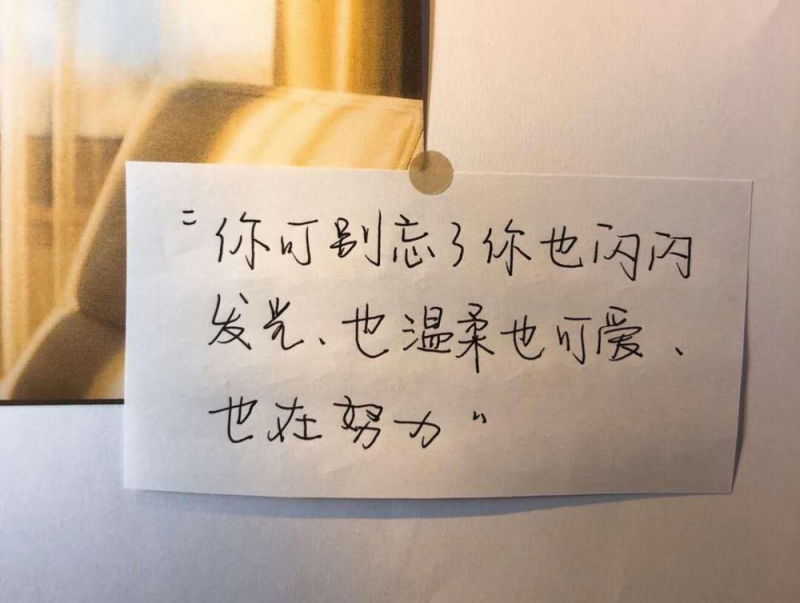 "你可别忘了你也闪闪
发光、也温柔也可爱、
也在努力"